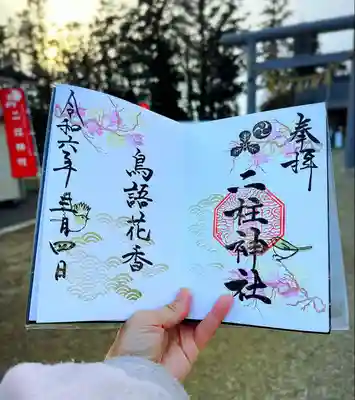 奉拝
二柱神社
鳥語花香
令和六年
三月四日